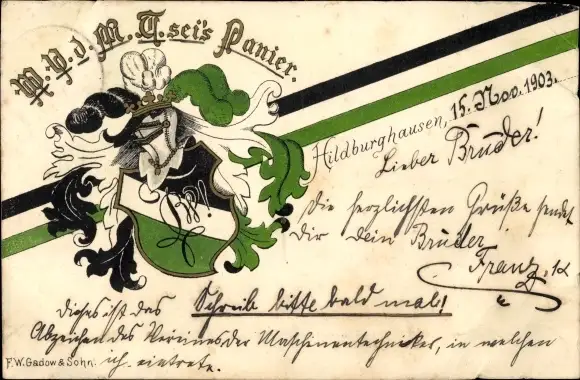 W. V. d. M. T. sei's Panier.
Hildburghausen, 15. Nov. 1903.
Lieber Bruder!
Die herzlichsten Grüße sendet
Dir dein Bruder
Franz,
Schreib bitte bald mal!
Dieses ist das
Abzeichen des Vereines der Maschinentechniker, in welchen
ich eintrete.
F.W. Gadow & Sohn.